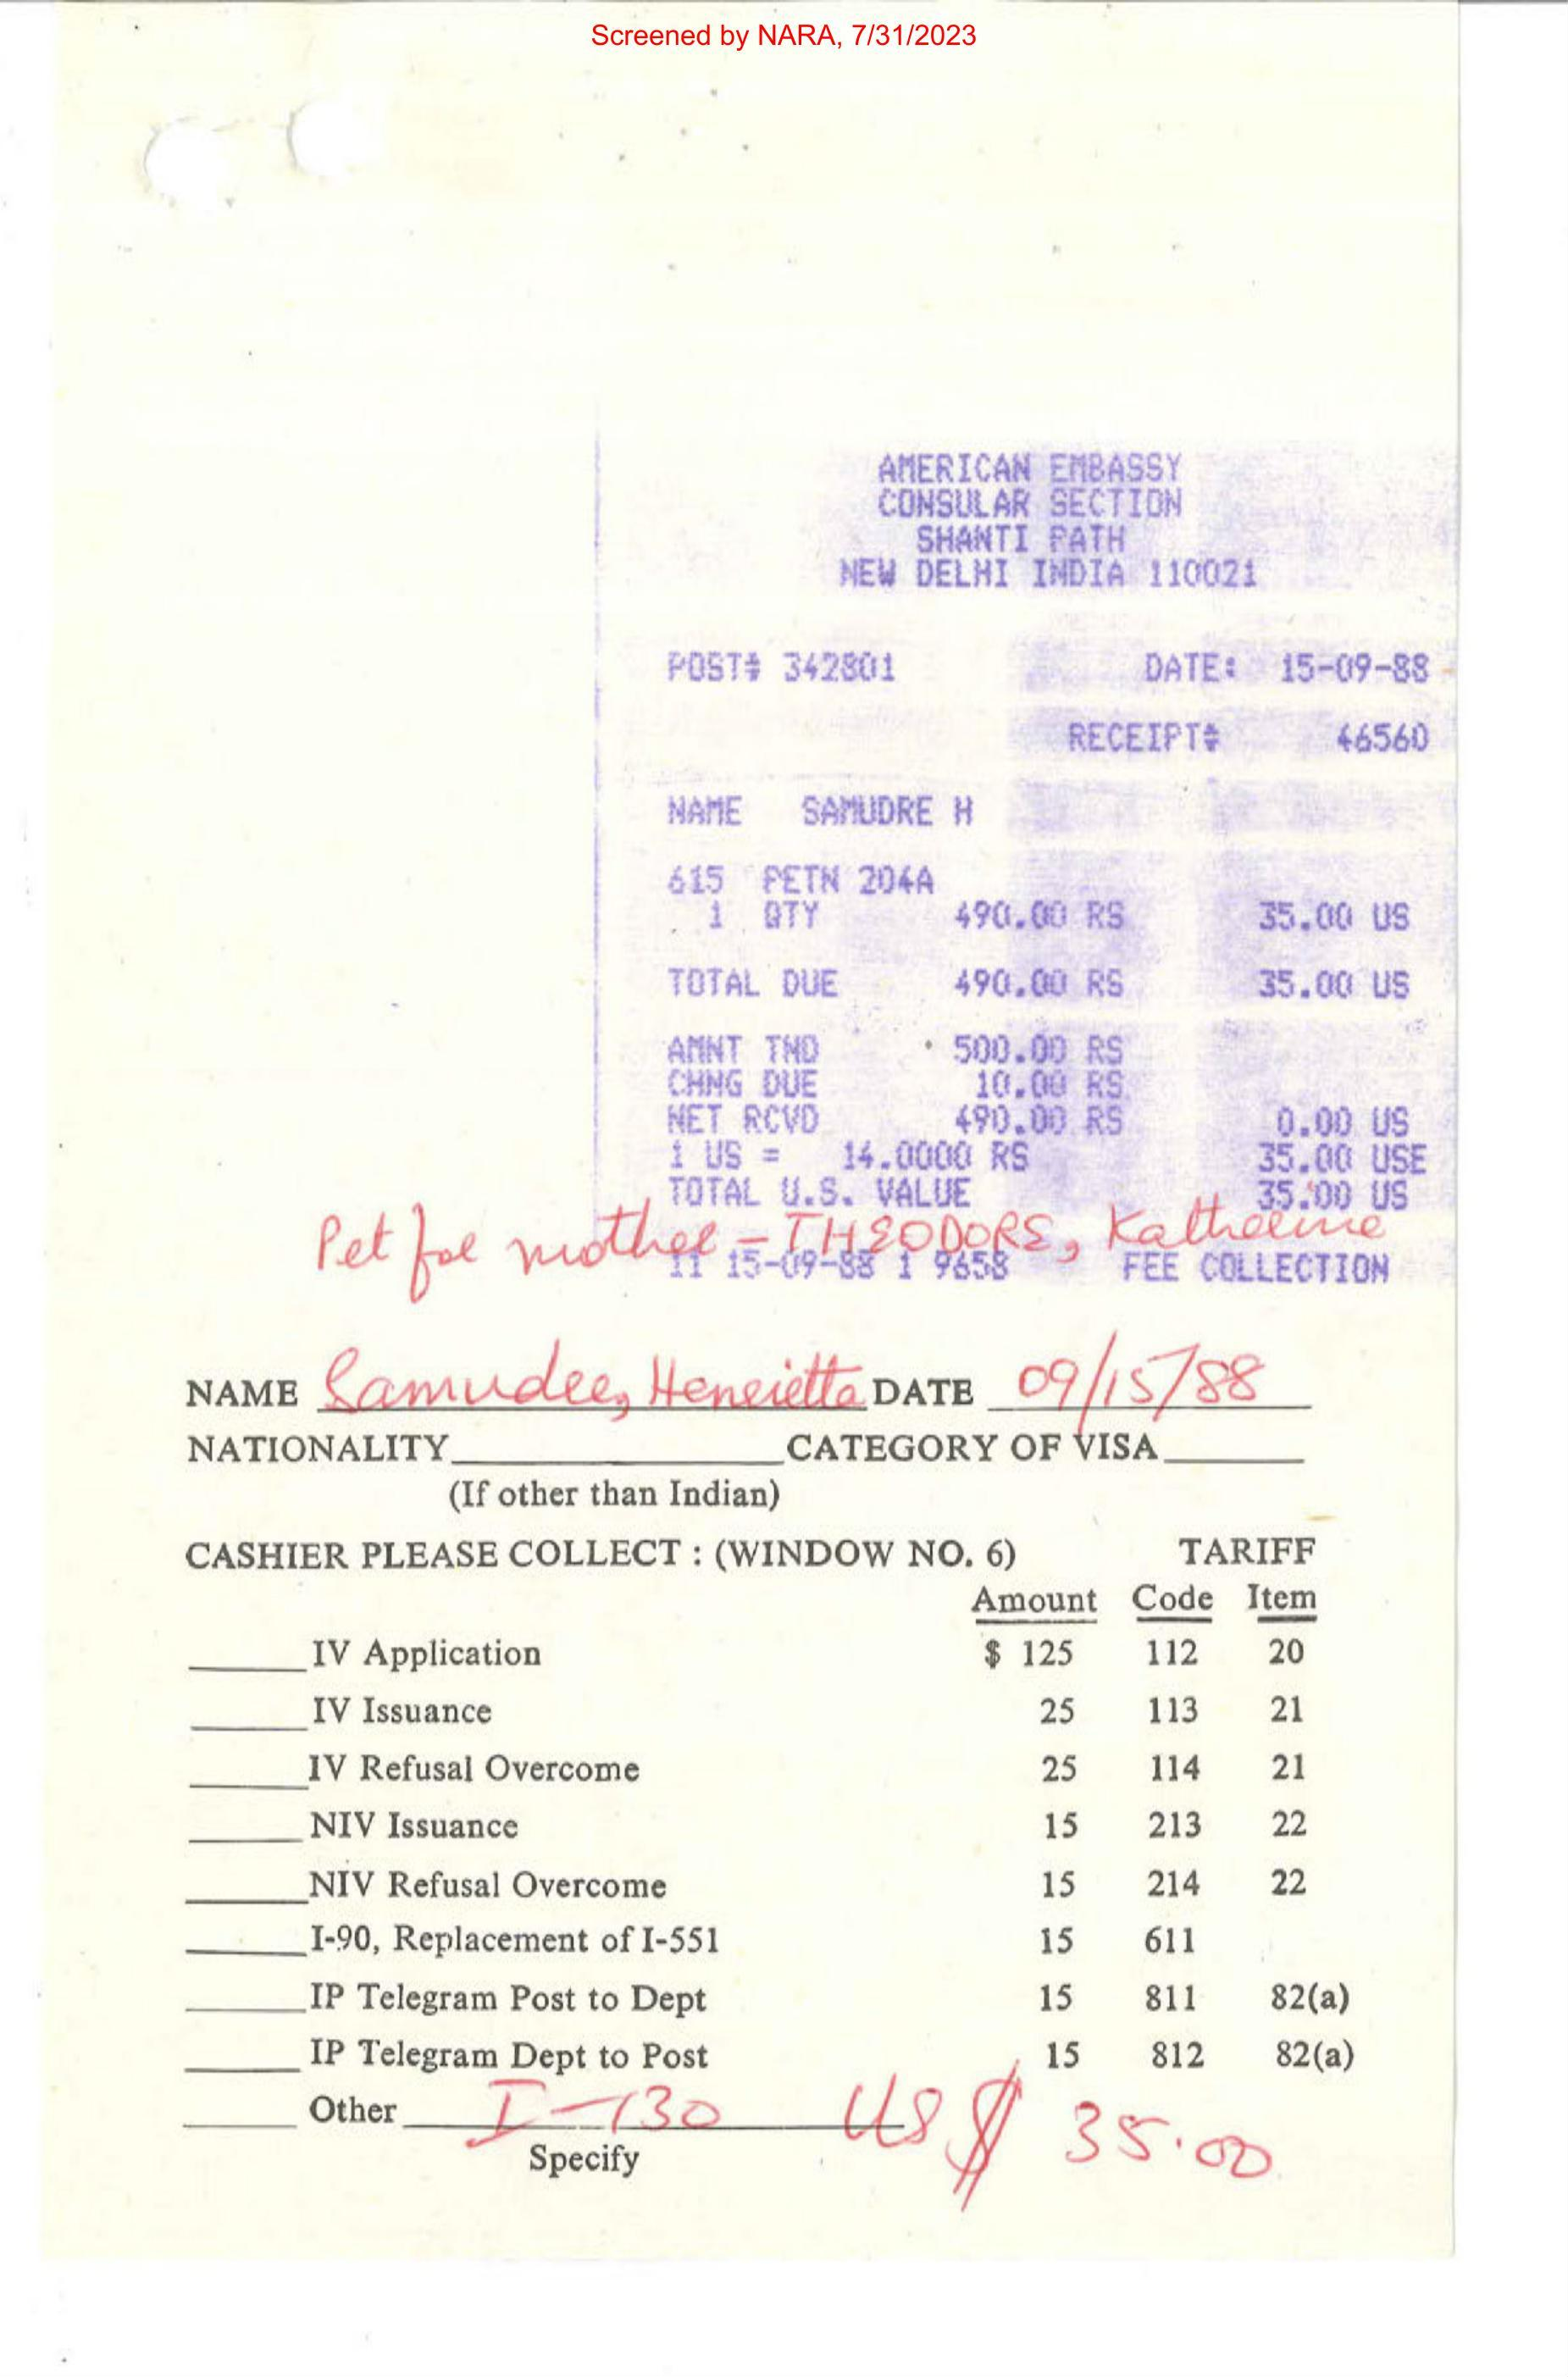 Screened by NARA, 7/31/2023
AMERICAN EMBASSY
CONSULAR SECTION
SHANTI PATH
NEW DELHI INDIA 110021
POST# 342801 DATE: 15-09-88
RECEIPT# 46560
NAME SAMUDRE H
615 PETN 204A
1 QTY 490.00 RS 35.00 US
TOTAL DUE 490.00 RS 35.00 US
AMNT TND 500.00 RS
CHNG DUE 10.00 RS
NET RCVD 490.00 RS 0.00 US
1 US = 14.0000 RS 35.00 USE
TOTAL U.S. VALUE 35.00 US
Pet for mother - THEODORE, Katherine
11 15-09-88 1 9658 FEE COLLECTION
NAME Samudre, Henrietta DATE 09/15/88
NATIONALITY CATEGORY OF VISA
(If other than Indian)
CASHIER PLEASE COLLECT : (WINDOW NO. 6) TARIFF
Amount Code Item
IV Application $ 125 112 20
IV Issuance 25 113 21
IV Refusal Overcome 25 114 21
NIV Issuance 15 213 22
NIV Refusal Overcome 15 214 22
I-90, Replacement of I-551 15 611
IP Telegram Post to Dept 15 811 82(a)
IP Telegram Dept to Post 15 812 82(a)
Other I-130 US $ 35.00
Specify